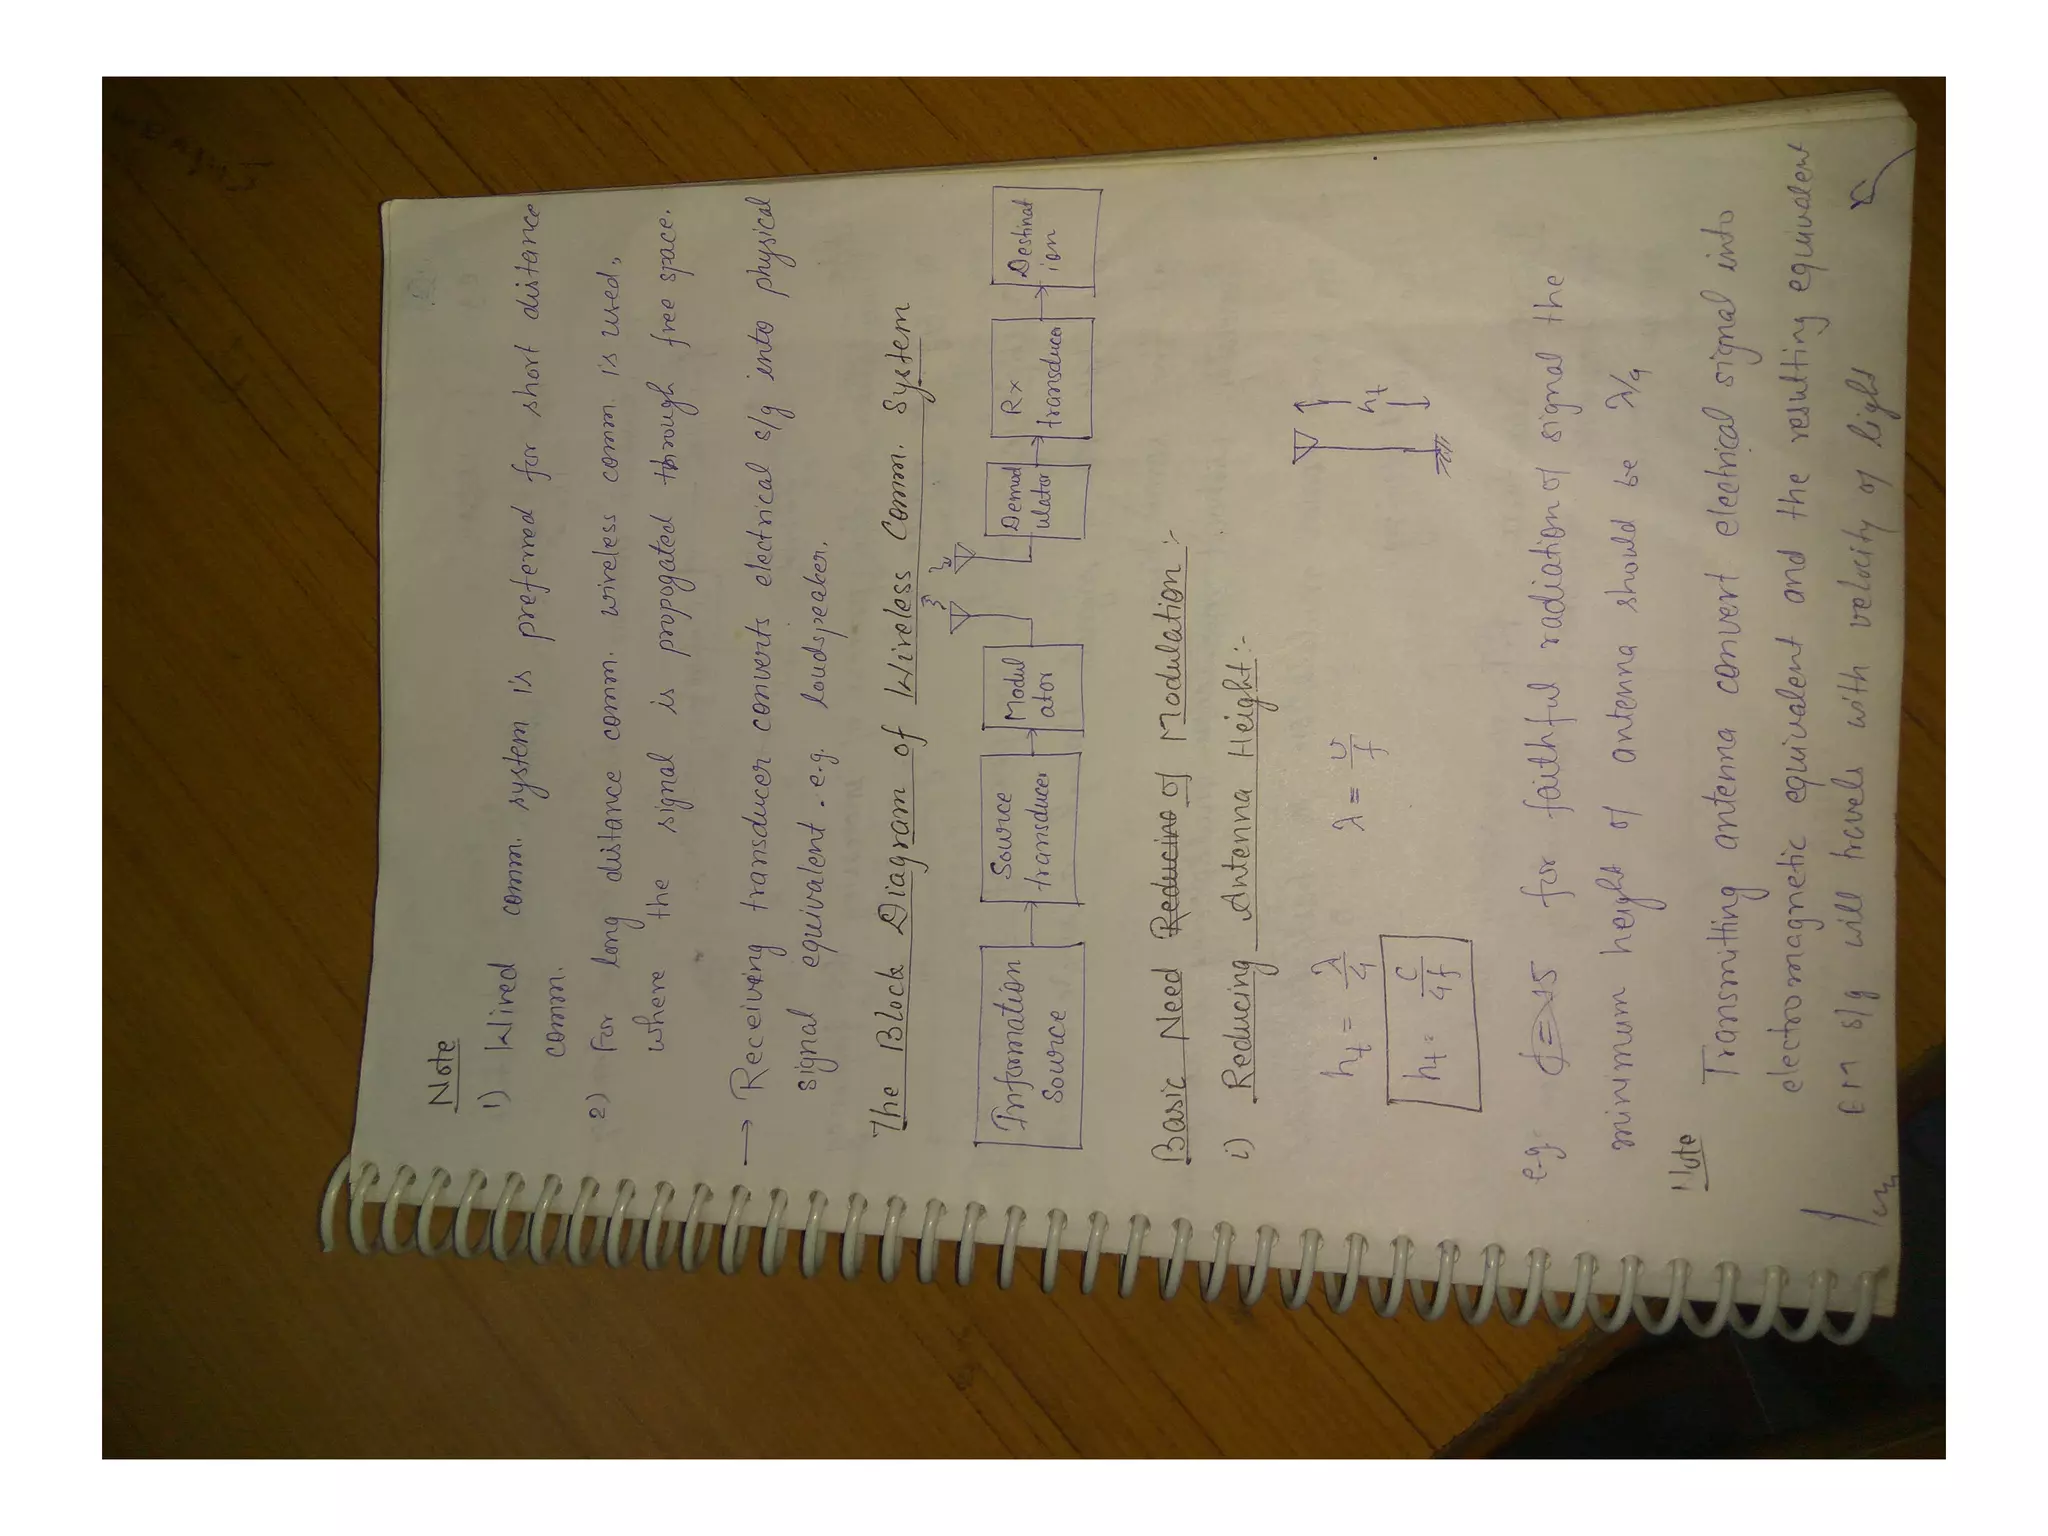 Note
1) Wired comm. system is preferred for short distance
comm.
2) For long distance comm. wireless comm. is used,
where the signal is propogated through free space.
→ Receiving transducer converts electrical s/g into physical
signal equivalent. e.g. loudspeaker.
The Block Diagram of Wireless Comm. System
Information
Source
Source
transducer
Modul
ator
Demod
ulator
Rx
transducer
Destinat
ion
Basic Need Reducing of Modulation:-
i) Reducing Antenna Height:-
ht = λ/4
λ = v/f
ht
ht = c/4f
e.g. for faithful radiation of signal the
minimum height of antenna should be λ/4
Note
Transmitting antenna convert electrical signal into
electromagnetic equivalent and the resulting equivalent
EM s/g will travels with velocity of light